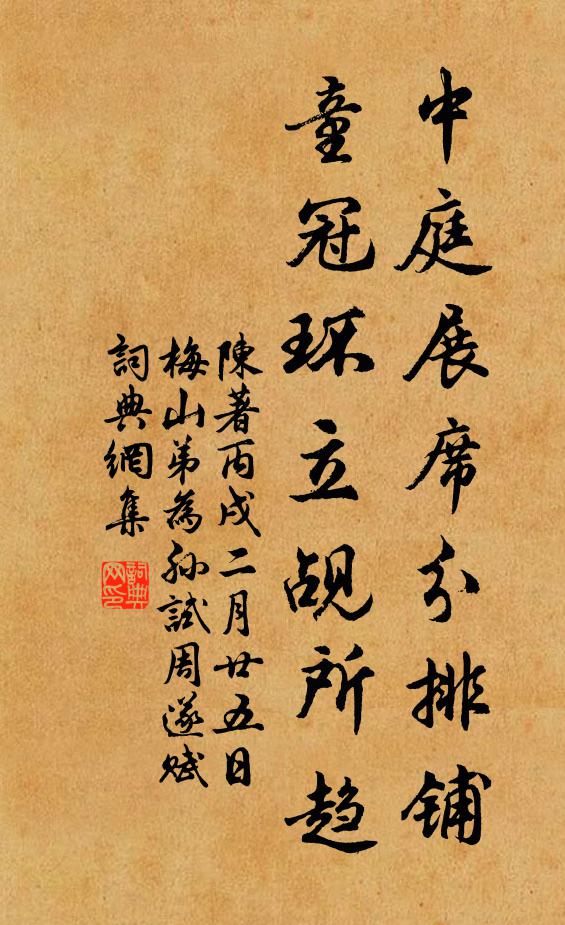 中庭展席分排铺
童冠环立觇所趋
陳著丙戌二月廿五日
梅山弟為孙試周遂赋
詞典網集
詞典网印